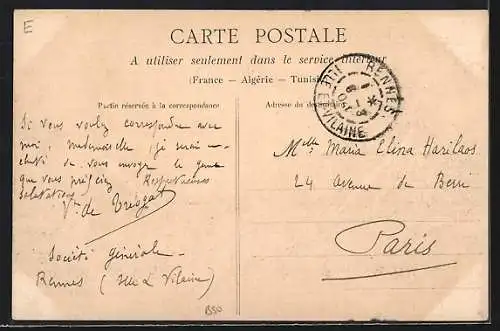 E
CARTE POSTALE
A utiliser seulement dans le service intérieur
(France — Algérie — Tunisie)
Partie réservée à la correspondance
Adresse du destinataire
RENNES
ILLE-ET-VILAINE
Si vous voulez correspondre avec
moi, mademoiselle, je serai en-
chanté de vous envoyer le genre
que vous préférez Respectueuses
salutations
Vte de Trésgat
Société générale
Rennes (Ille & Vilaine)
Melle Maria Elina Harilaos
24 avenue de Berri
Paris
B50